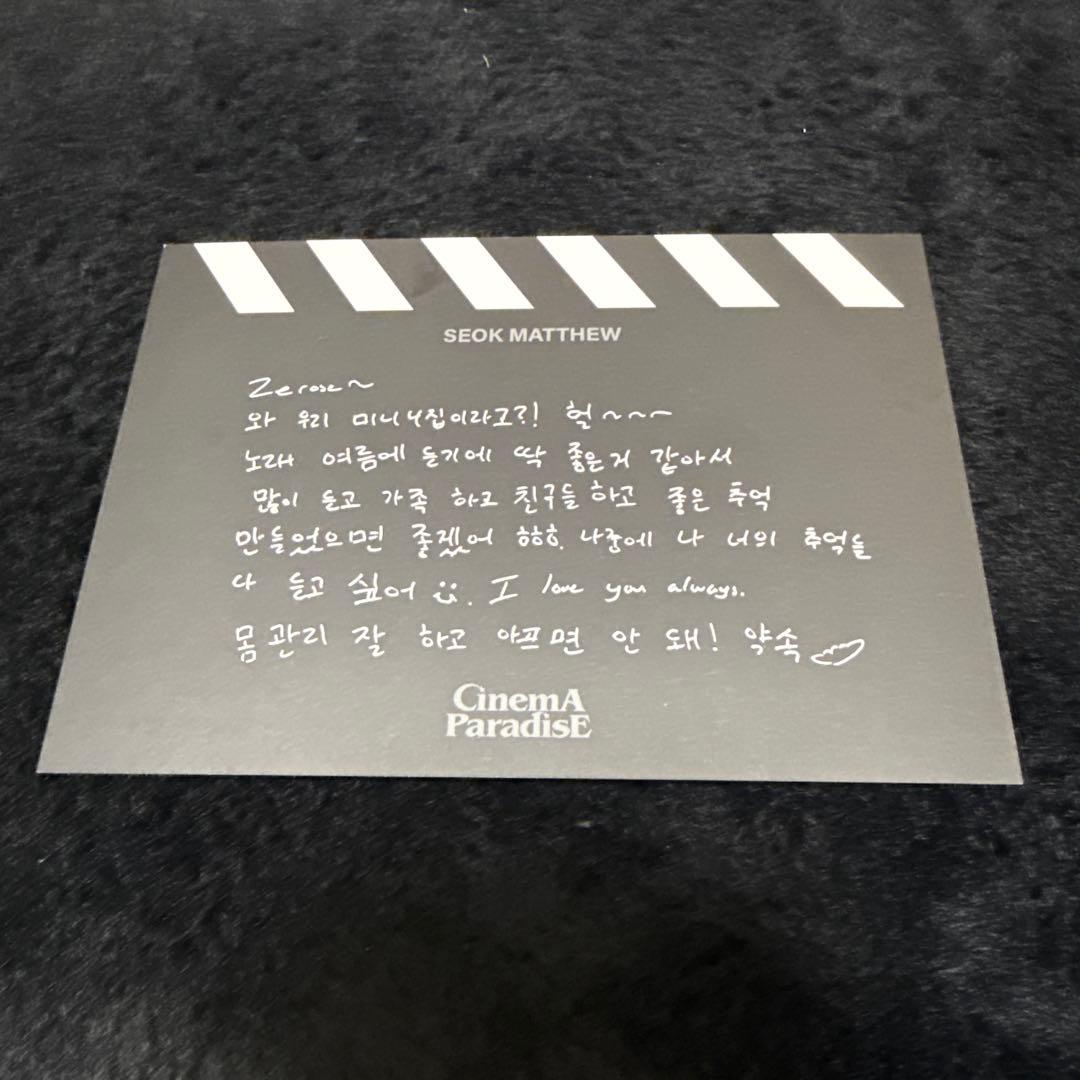 SEOK MATTHEW
Zerose~
와 우리 미니 4집이라고?! 헐~~~
노래 여름에 듣기에 딱 좋은거 같아서
많이 듣고 가족 하고 친구들 하고 좋은 추억
만들었으면 좋겠어 ㅎㅎㅎ. 나중에 나 너의 추억들
다 듣고 싶어 :). I love you always.
몸 관리 잘 하고 아프면 안 돼! 약속
CinemA
ParadisE